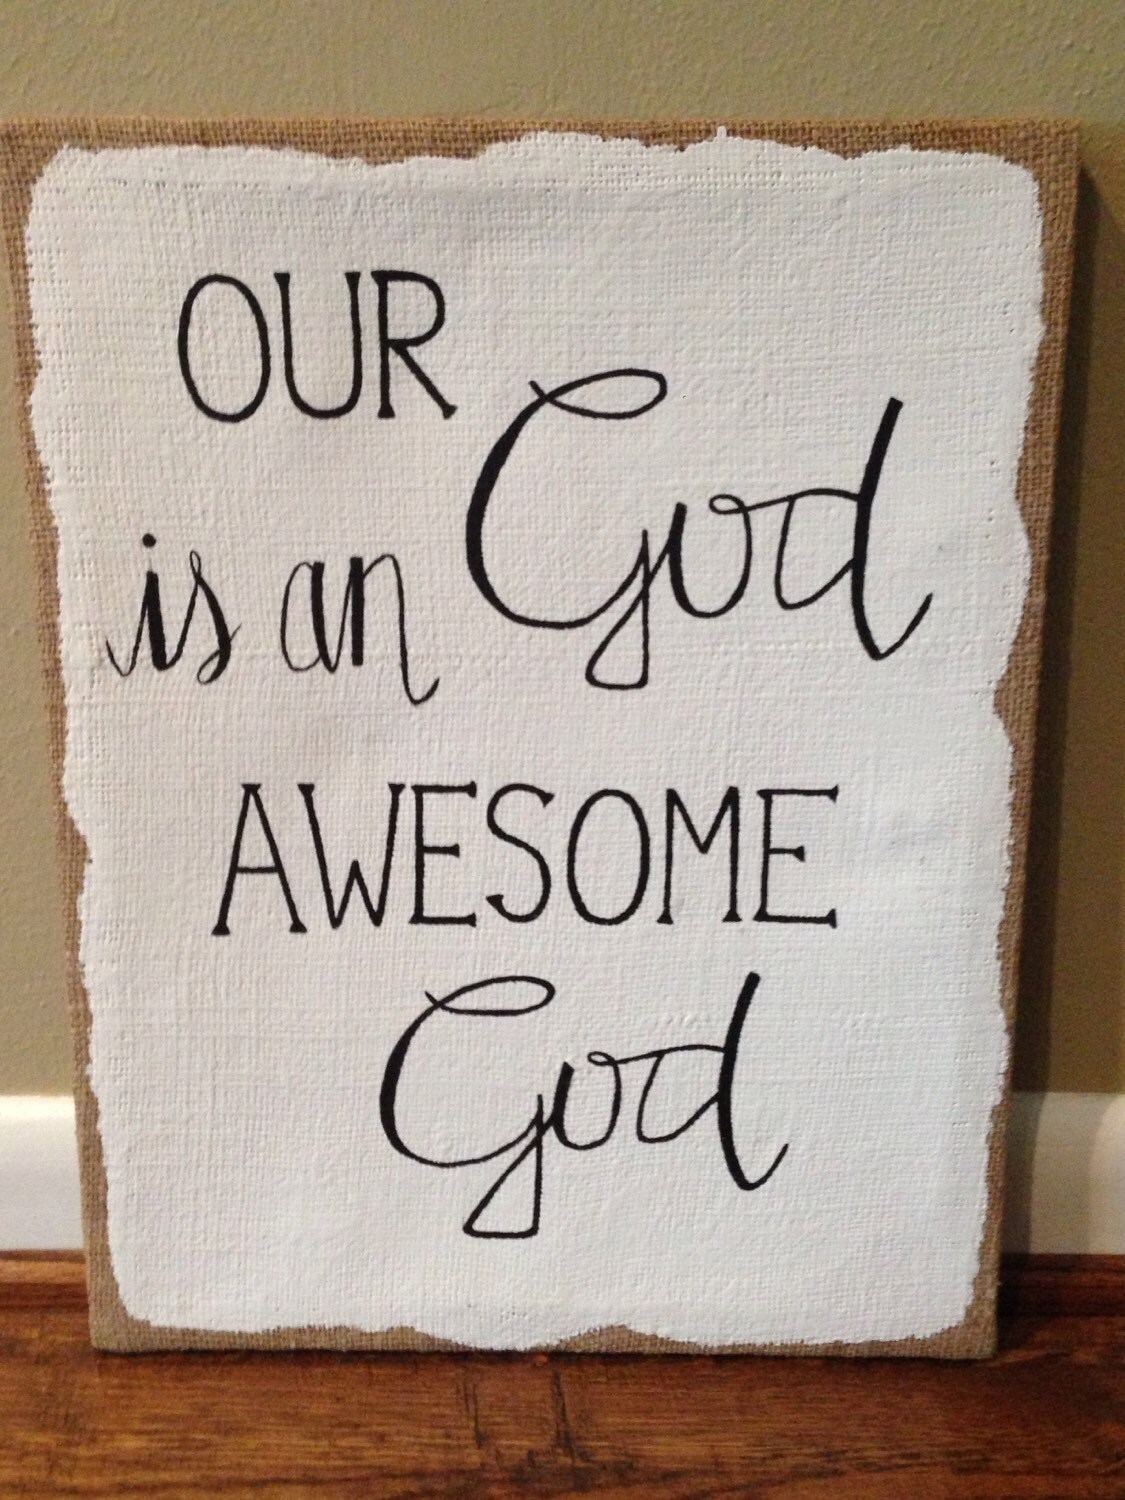 OUR God
is an
AWESOME
God